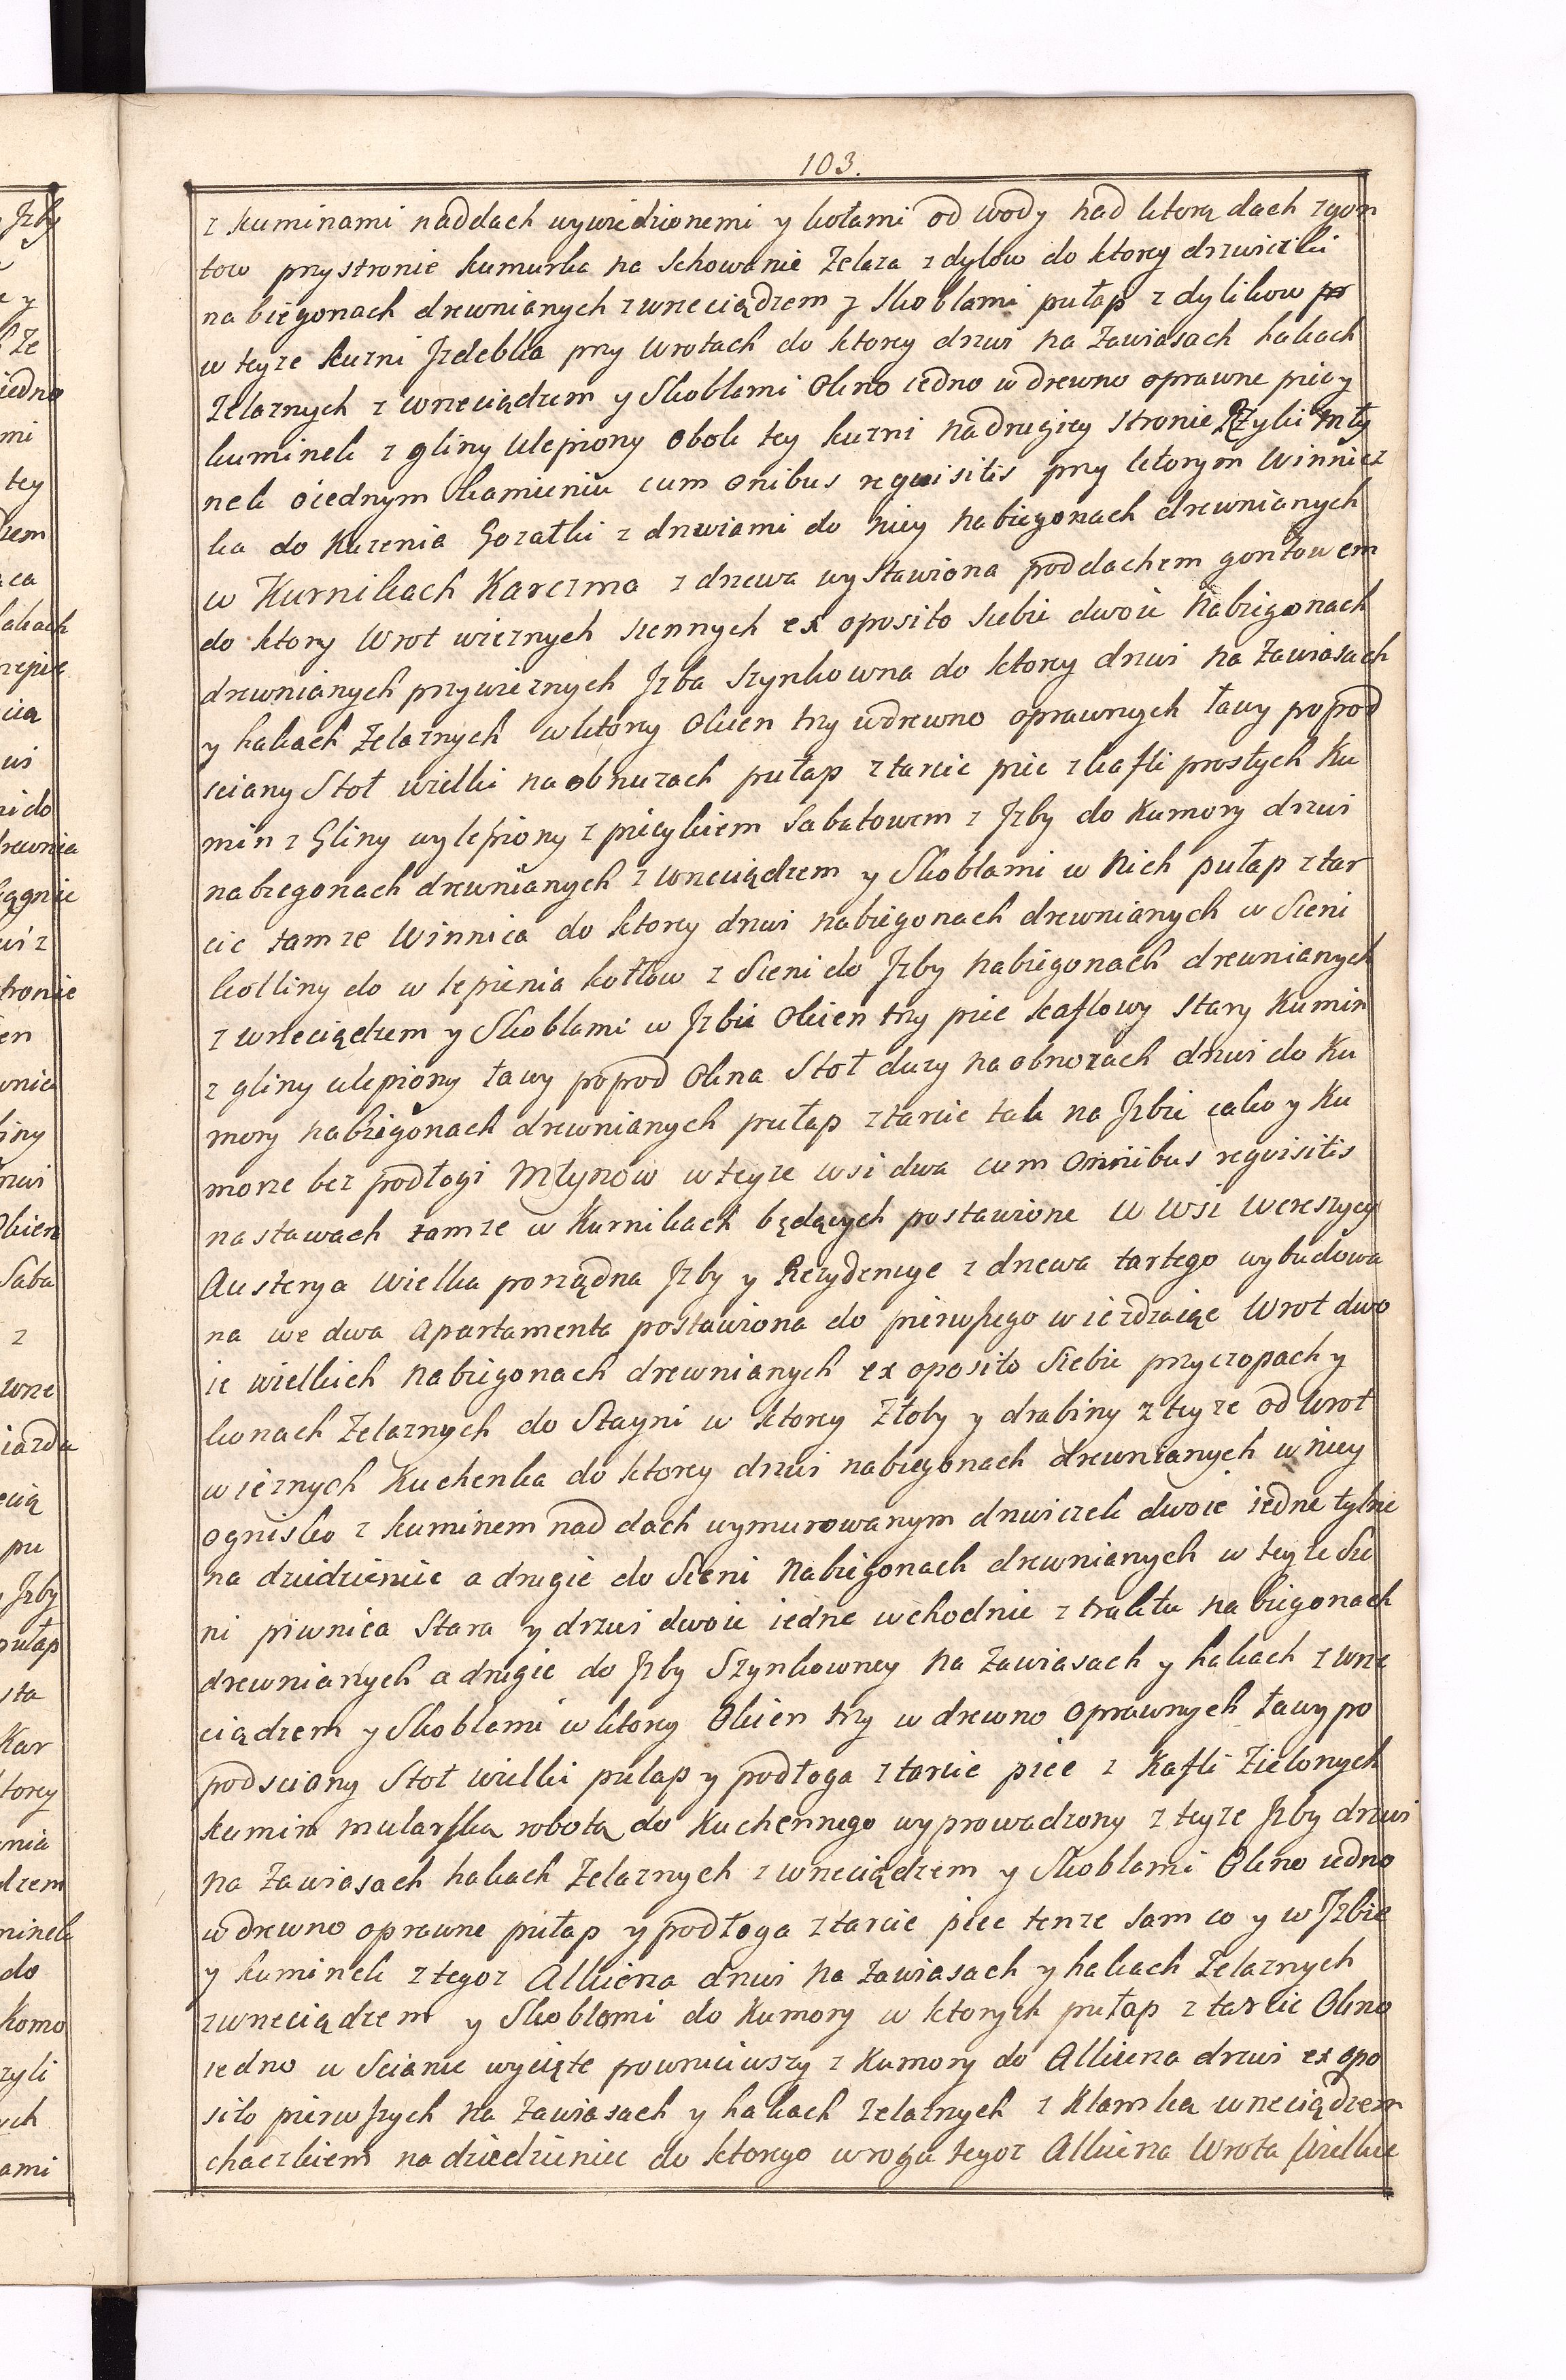 103.
z kuminami naddach wywiedzionemi y kołami od wody nad ktorą dach zgon
tow przystronie kumurka na schowanie Zelaza z dylow do ktorey drzwiczki
na biegonach drewnianych z wrzeciądzem y Skoblami pułap z dylikow
w teyze kuzni Jzdebka przy wrotach do ktorey drzwi na Zawiasach hakach
Zelaznych z wrzeciądzem y Skoblami Okno iedno w drewno oprawne piec y
kuminek z gliny Ulepiony Obok tey kuzni nadrugiey stronie Rzyki mły
nek o iednym Kamieniu cum onibus requisitis przy ktorym Winnicz
ka do Kurzenia Gorzałki z drzwiami do niey nabiegonach drewnianych
w Kurnikach Karczma z drzewa wystawiona poddachem gontowem
do ktory Wrot wieznych siennych ex oposito siebie dwoie Nabiegonach
drewnianych przywieznych Jzba Szynkowna do ktorey drzwi na Zawiasach
y hakach Zelaznych w ktory Okien trzy wdrewno oprawnych ławy popod
sciany Stoł wielki na obnuzach pułap z tarcic piec z kafli prostych Ku
min z Gliny wylepiony z piecykiem Sabatowem z Jzby do Kumory drzwi
nabiegonach drewnianych z wrzeciądzem y Skoblami w nich pułap z tar
cic tamze Winnica do ktorey drzwi nabiegonach drewnianych w Sieni
kotliny do w lepienia kotłow z Sieni do Jzby nabiegonach drewnianych
z wrzeciądzem y Skoblami w Jzbie Okien trzy piec kaflowy stary Kumin
z gliny ulepiony ławy popod Okna Stoł duzy na obnozach drzwi do Ku
mory nabiegonach drewnianych pułap z tarcic tak na Jzbie iako y Ku
morze bez podłogi Młynow w teyze wsi dwa cum Omnibus requisitis
nastawach tamze w Kurnikach będących postawione W Wsi Wereszycy
Austerya Wielka porządna Jzby y Rezydencye z drzewa tartego wybudowa
na we dwa Apartamenta postawiona do pierwszego w ieżdzaiąc Wrot dwo
ie wielkich nabiegonach drewnianych ex oposito Siebie przyczopach y
konach Zelaznych do Stayni w ktorey Złoby y drabiny z teyze od Wrot
w ieznych Kuchenka do ktorey drzwi nabiegonach drewnianych w niey
ognisko z kuminem nad dach wymurowanym drzwiczek dwoie iedne tylne
na dziedzieniec a drugie do Sieni Nabiegonach drewnianych w teyze Sie
ni piwnica Stara y drzwi dwoie iedne wchodnie z traktu nabiegonach
drewnianych a drugie do Jzby Szynkowney na Zawiasach y hakach z wrze
ciądzem y Skoblami w ktory Okien trzy w drewno Oprawnych ławy po
podsciany Stoł wielki pułap y podłoga z tarcic piec z Kafli Zielonych
kumin mularską robotą do Kuchennego wyprowadzony z teyze Jzby drzwi
na Zawiasach hakach Zelaznych z wrzeciądzem y Skoblami Okno iedno
w drewno oprawne pułap y podłoga z tarcic piec tenze sam co y w Jzbie
y kuminek z tegoz Alkierza drzwi na Zawiasach y hakach Zelaznych
zwrzeciądzem y Skoblami do Kumory w ktorych pułap z tarcic Okno
iedno w Scianie wycięte powruciwszy z Kumory do Alkierza drzwi ex opo
sito pierwszych na Zawiasach y hakach Zelaznych z Klamką wrzeciądzem
chaczkiem na dziedziniec do ktorego w rogu tegoz Alkierza Wrota Wielkie